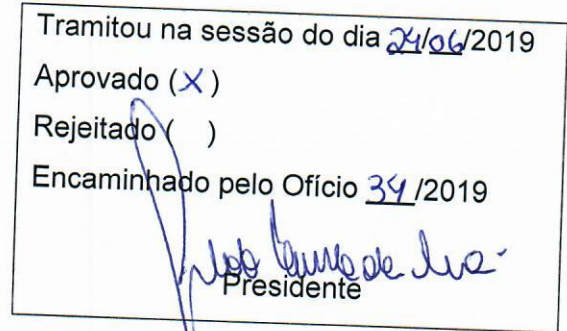 Tramitou na sessão do dia 24/06/2019
Aprovado (X)
Rejeitado ( )
Encaminhado pelo Ofício 34/2019
Presidente